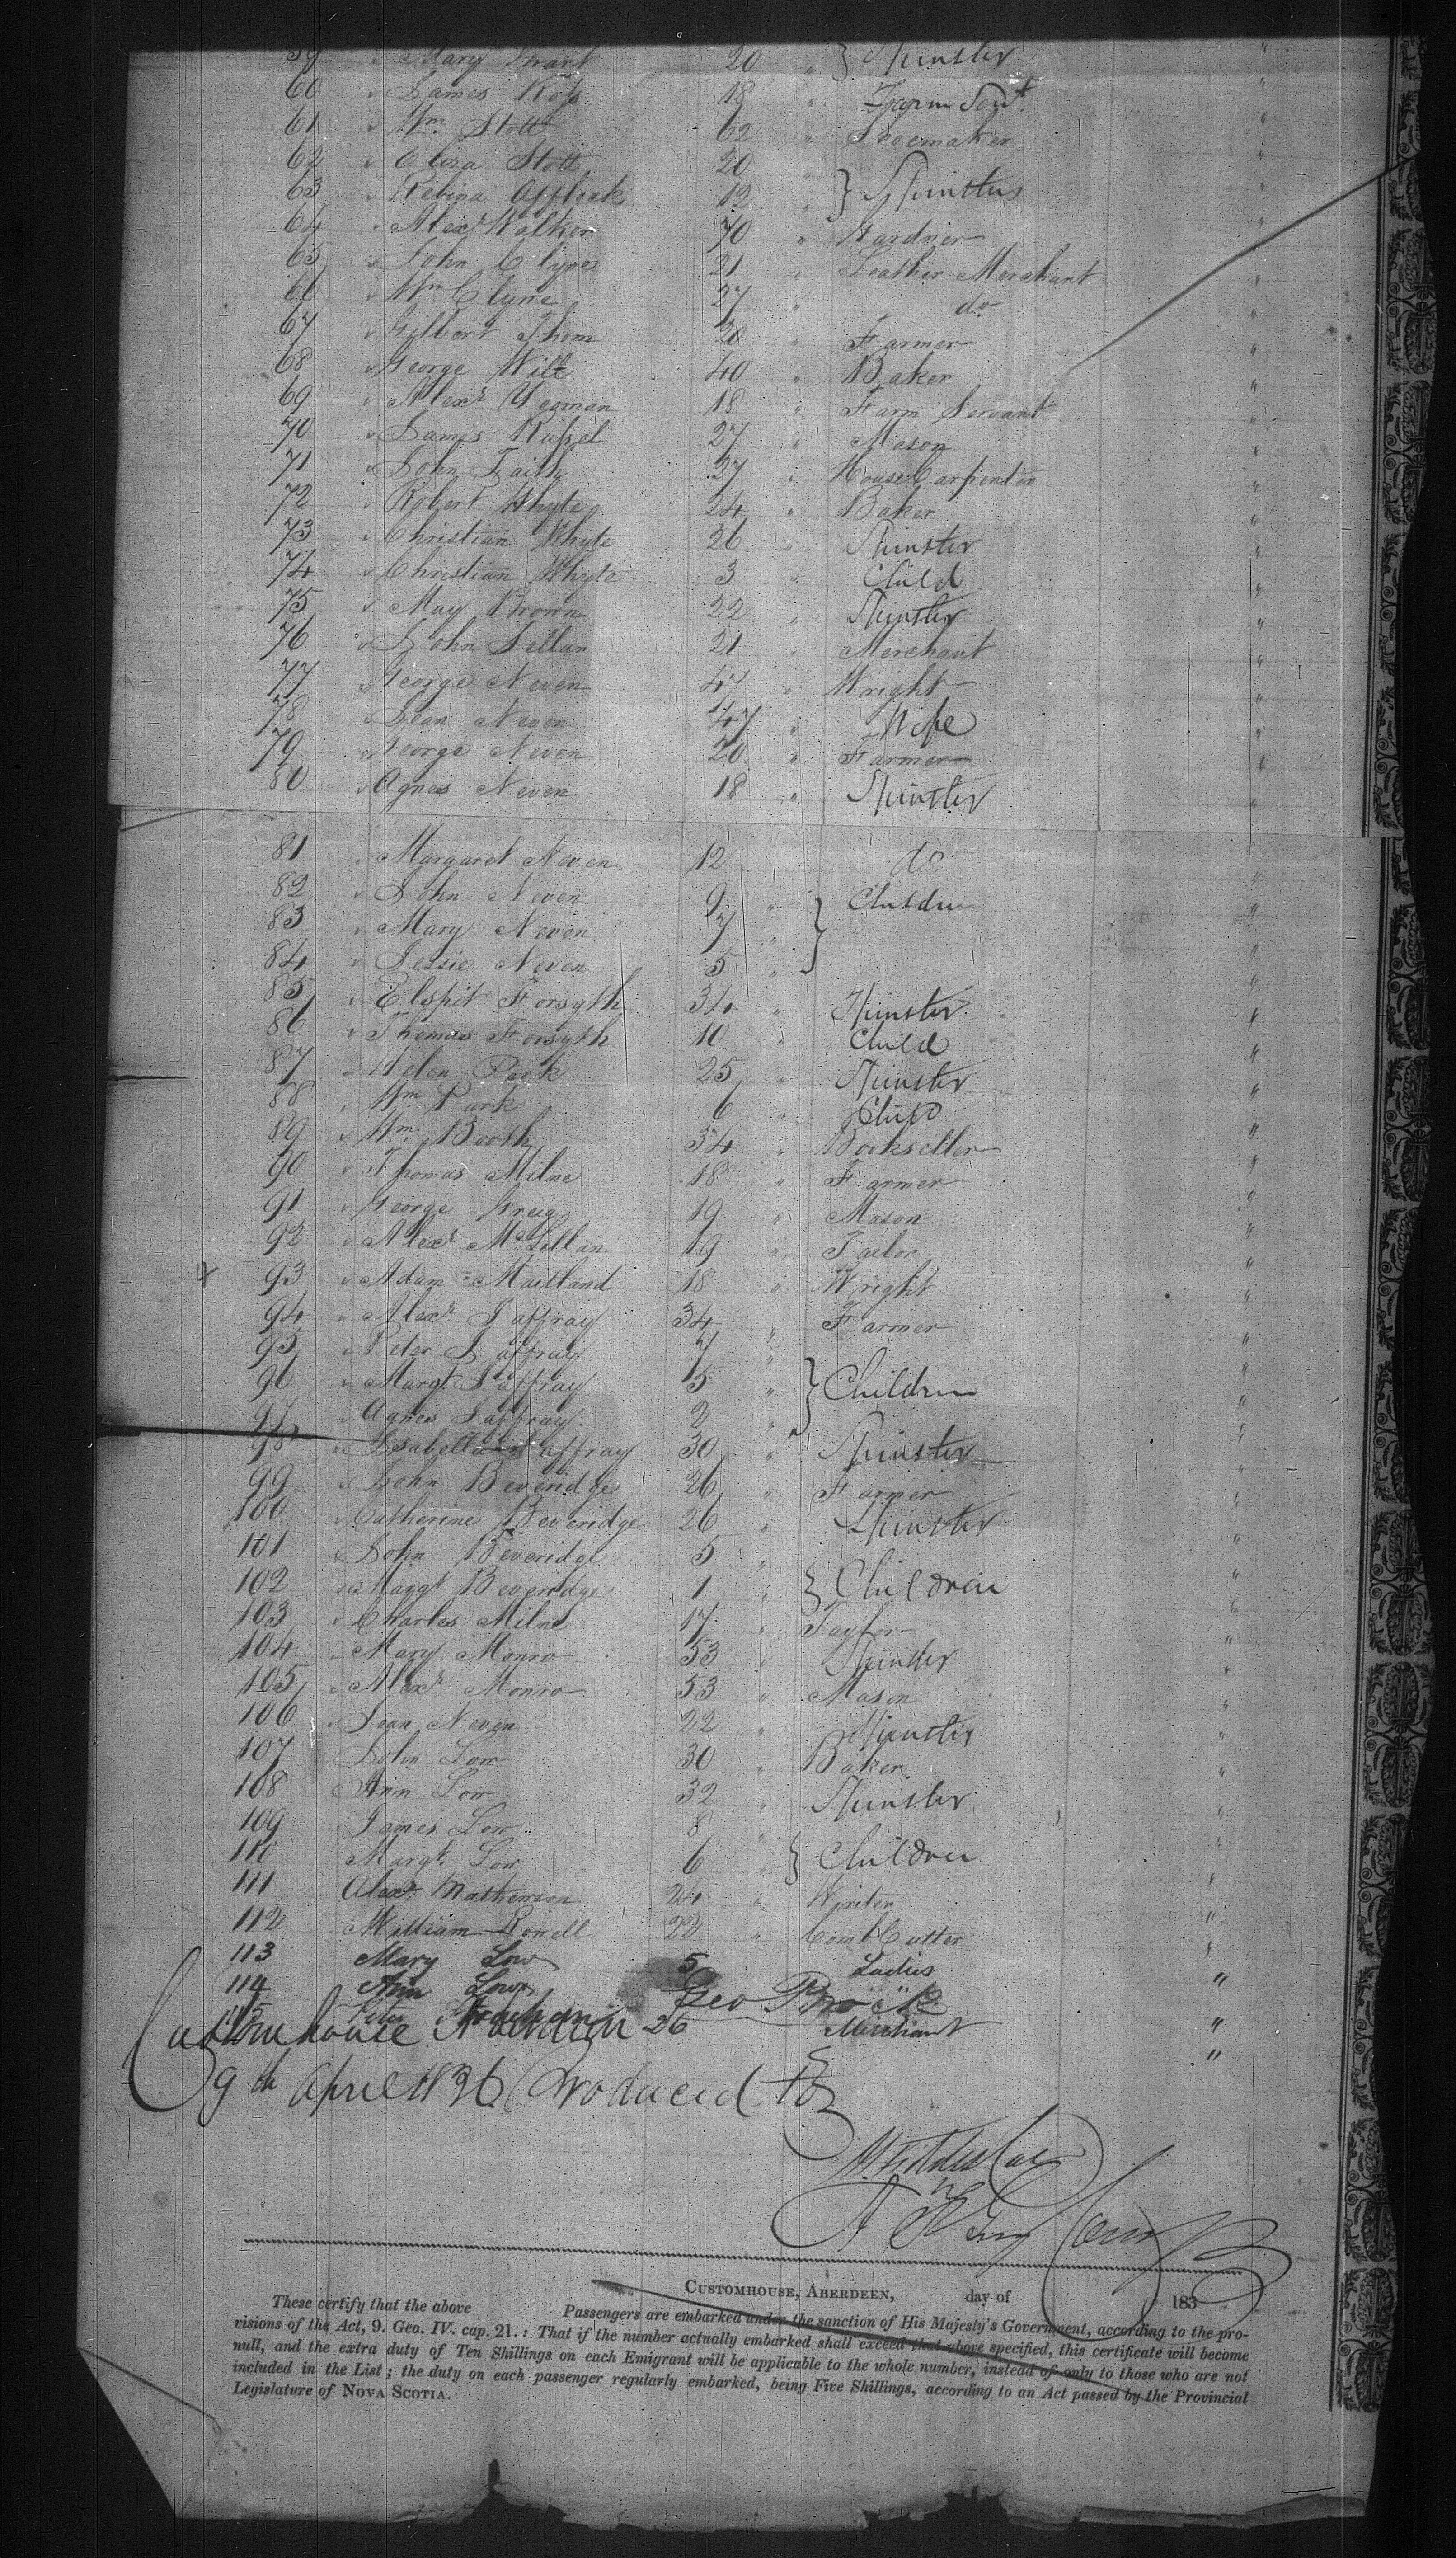 59 " Mary Grant 20 " } Spinster "
60 " James Ross 18 " Farm Servt. "
61 " Wm Stott 62 " Shoemaker "
62 " Eliza Stott 20 "
63 " Robina Affleck 12 " } Spinsters "
64 " Alexr Walker 70 " Gardner "
65 " John Clyne 21 " Leather Merchant "
66 " Wm Clyne 27 " do "
67 " Gilbert Thom 20 " Farmer "
68 " George Will 40 " Baker "
69 " Alexr Yeoman 18 " Farm Servant "
70 " James Russel 27 " Mason "
71 " John Faith 27 " House Carpenter "
72 " Robert Whyte 24 " Baker "
73 " Christian Whyte 26 " Spinster "
74 " Christian Whyte 3 " Child "
75 " May Brown 22 " Spinster "
76 " John Sellan 21 " Merchant "
77 " George Neven 47 " Wright "
78 " Jean Neven 47 " Wife "
79 " George Neven 20 " Farmer "
80 " Agnes Neven 18 " Spinster "
81 " Margaret Neven 12 do "
82 " John Neven 9 " } Children "
83 " Mary Neven 7 " "
84 " Jessie Neven 5 " "
85 " Elspit Forsyth 34 " Spinster "
86 " Thomas Forsyth 10 " Child "
87 " Helen Park 25 " Spinster "
88 " Wm Park 6 " Child "
89 " Wm Booth 34 " Bookseller "
90 " Thomas Milne 18 " Farmer "
91 " George Greig 19 " Mason "
92 " Alexr McLellan 19 " Tailor "
93 " Adam Maitland 18 " Wright "
94 " Alexr Jaffray 34 " Farmer "
95 " Peter Jaffray 7 " "
96 " Margt. Jaffray 5 " } Children "
97 " Agnes Jaffray 2 " "
98 " Isabella Jaffray 30 " Spinster "
99 " John Beveridge 26 " Farmer "
100 " Catherine Beveridge 26 " Spinster "
101 " John Beveridge 5 " "
102 " Margt Beveridge 1 " } Children "
103 " Charles Milne 17 " Taylor "
104 " Mary Monro 53 " Spinster "
105 " Alexr Monro 53 " Mason "
106 " Jean Neven 22 " Spinster "
107 John Low 30 " Baker "
108 Ann Low 32 " Spinster "
109 James Low 8 " "
110 Margt. Low 6 " } Children "
111 Alexr Matherson 24 " Writer "
112 William Ronell 22 " Comb Cutter "
113 Mary Low 5 Ladies "
114 Ann Low " "
Geo Brock
115 Peter 26 Merchant "
Customhouse Aberdeen
9th April 1836 Produced to
CUSTOMHOUSE, ABERDEEN, day of 183
These certify that the above Passengers are embarked under the sanction of His Majesty's Government, according to the pro-
visions of the Act, 9. Geo. IV. cap. 21.: That if the number actually embarked shall exceed that above specified, this certificate will become
null, and the extra duty of Ten Shillings on each Emigrant will be applicable to the whole number, instead of only to those who are not
included in the List; the duty on each passenger regularly embarked, being Five Shillings, according to an Act passed by the Provincial
Legislature of NOVA SCOTIA.